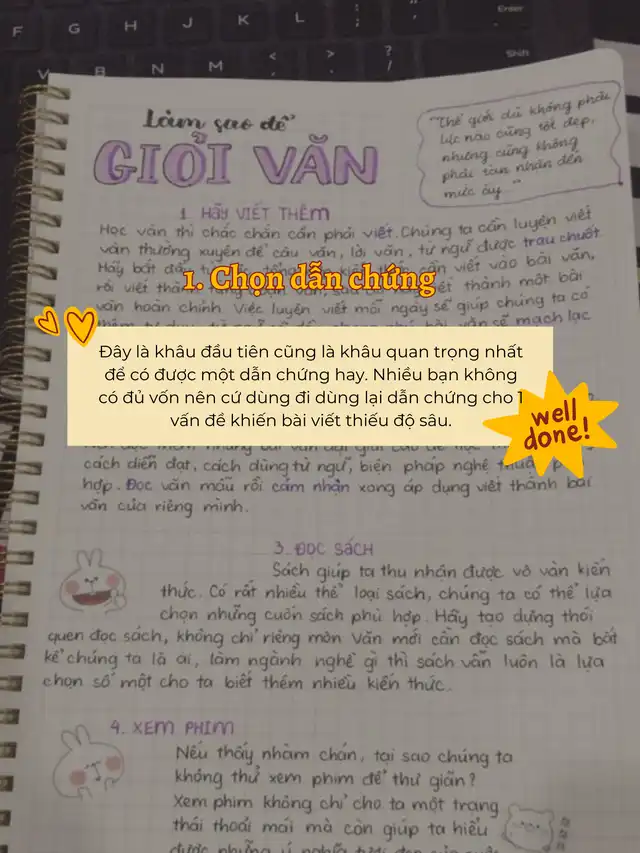 Làm sao để
GIỎI VĂN
"Thế giới dù không phải
lúc nào cũng tốt đẹp,
nhưng cũng không
phải tàn nhẫn đến
mức ấy..."
1. HÃY VIẾT THÊM
Học văn thì chắc chắn cần phải viết. Chúng ta cần luyện viết
văn thường xuyên để câu văn, lời văn, từ ngữ được trau chuốt.
Hãy bắt đầu viết vào bài văn,
rồi viết thành viết thành một bài
văn hoàn chỉnh. Việc luyện viết mỗi ngày sẽ giúp chúng ta có
sẽ mạch lạc
1. Chọn dẫn chứng
Đây là khâu đầu tiên cũng là khâu quan trọng nhất
để có được một dẫn chứng hay. Nhiều bạn không
có đủ vốn nên cứ dùng đi dùng lại dẫn chứng cho 1
vấn đề khiến bài viết thiếu độ sâu.
well
done!
cách diễn đạt, cách dùng từ ngữ, biện pháp nghệ thuật
hợp. Đọc văn mẫu rồi cảm nhận xong áp dụng viết thành bài
văn của riêng mình.
3. ĐỌC SÁCH
Sách giúp ta thu nhận được vô vàn kiến
thức. Có rất nhiều thể loại sách, chúng ta có thể lựa
chọn những cuốn sách phù hợp. Hãy tạo dựng thói
quen đọc sách, không chỉ riêng môn Văn mới cần đọc sách mà bất
kể chúng ta là ai, làm ngành nghề gì thì sách vẫn luôn là lựa
chọn số một cho ta biết thêm nhiều kiến thức.
4. XEM PHIM
Nếu thấy nhàm chán, tại sao chúng ta
không thử xem phim để thư giãn?
Xem phim không chỉ cho ta một trạng
thái thoải mái mà còn giúp ta hiểu
được những ý nghĩa
F
G
H
J
K
L
Enter
V
B
N
M
<
>
?
/
Shift